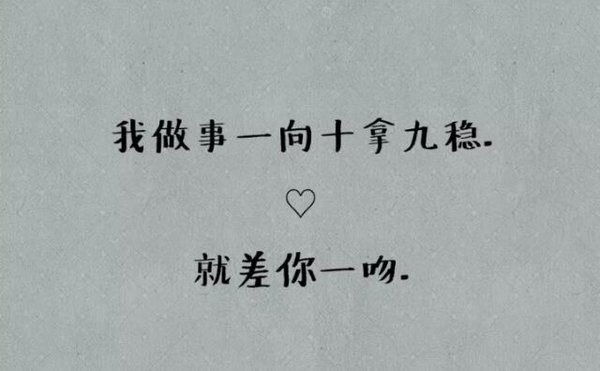 我做事一向十拿九稳.
♡
就差你一吻.